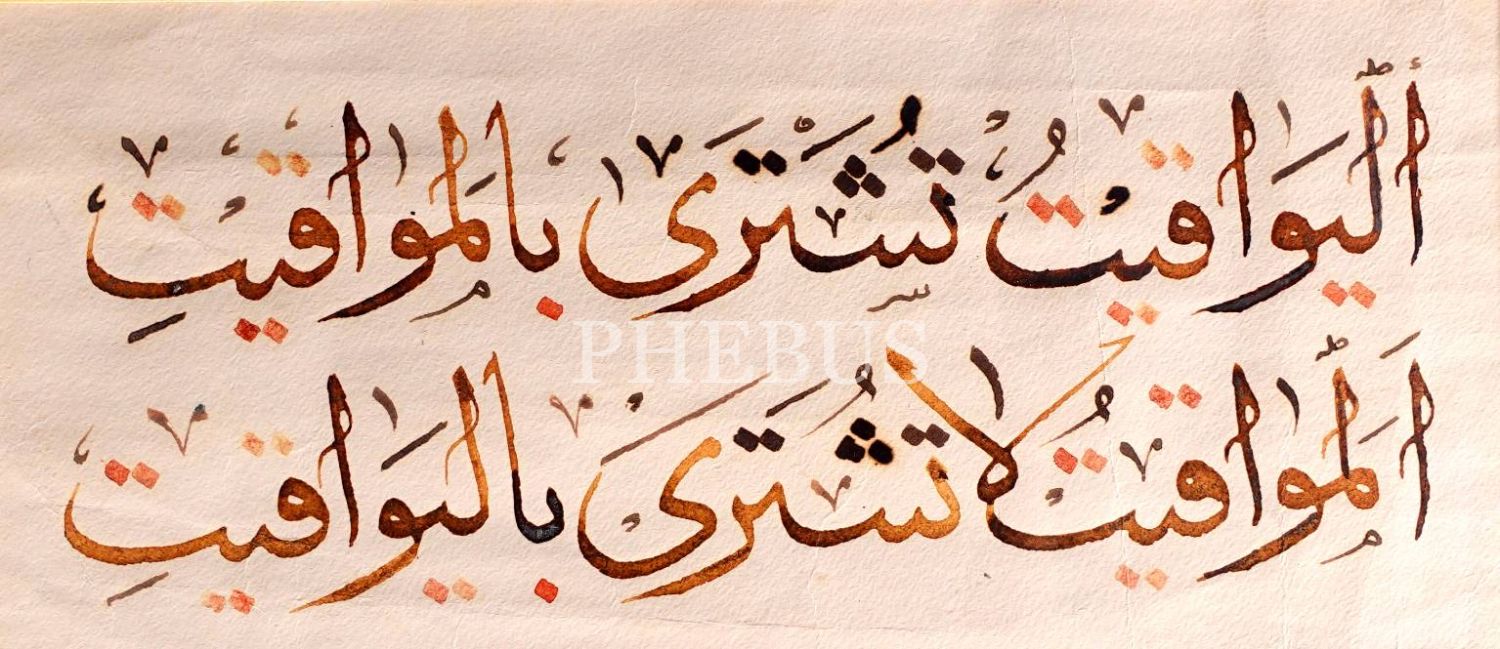 اَلْيَوَاقِيتُ تُشْتَرَى بِالْمَوَاقِيتِ
PHEBUS
اَلْمَوَاقِيتُ لَا تُشْتَرَى بِالْيَوَاقِيتِ